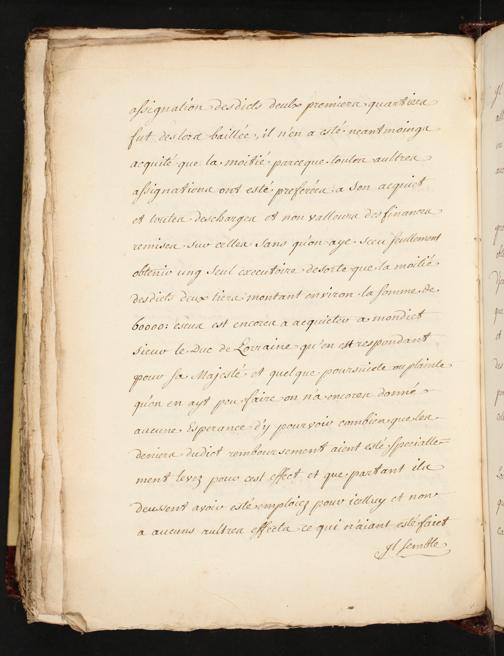 assignation desdicts deulx premiers quartiers
fut deslors baillée, il n'en a esté neantmoings
acquité que la moitié parceque toutes aultres
assignations ont esté preferées a son acquict
et toutes descharges et non valleurs des finances
remises sur celles sans qu'on aye sceu seullement
obtenir ung seul executoire desorte que la moitié
desdicts deux tiers montant environ la somme de
60000: escus est encores a acquieter a mondict
sieur le Duc de Lorraine qu'en est respondant
pour sa Majesté et quelque poursuicte ou plainte
qu'on en ayt peu faire on n'a encores donné
aucune Esperance d'y pourvoir combien que les
deniers dudict remboursement aient esté specialle=
ment levez pour cest effect et que partant ils
deussent avoir esté emploiez pour icelluy et non
a aucuns aultres effects ce qui n'aiant esté faict
Il semble